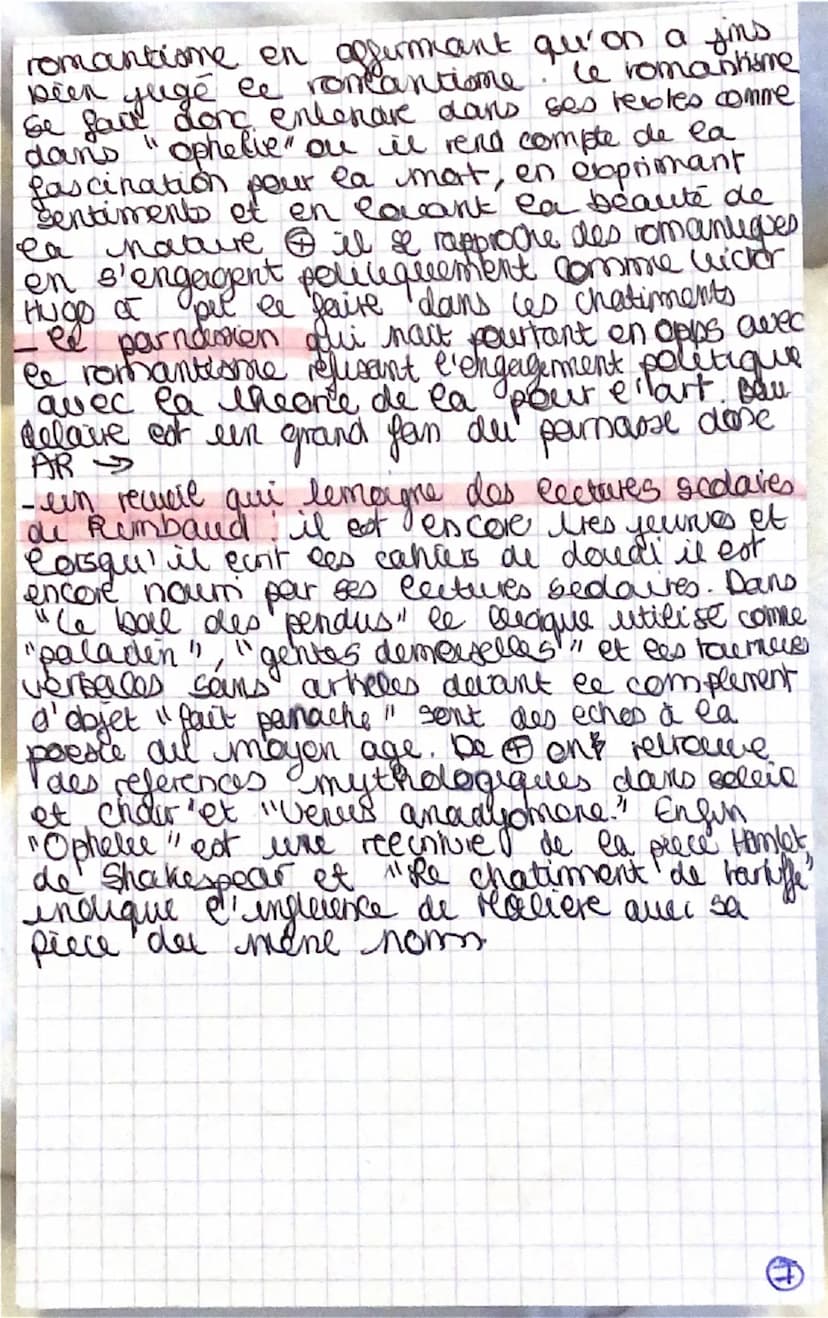 romantisme en affirmant qu'on a jms
bien jugé le romantisme. Le romantisme
se fait donc entendre dans ses textes comme
dans "Ophelie" ou il rend compte de la
fascination pour la mort, en exprimant
sentiments et en louant la beauté de
la nature ⊕ il se rapproche des romantiques
en s'engageant politiquement comme Victor
Hugo a pu le faire dans les chatiments
- le parnassien qui nait pourtant en opps avec
le romantisme refusant l'engagement politique
avec la theorie de la pour l'art. Bau
delaire est un grand fan du parnasse donc
AR →
- un recueil qui temoigne des lectures scolaires
de Rimbaud : il est encore tres jeunes et
lorsqu'il ecrit les cahiers de douai il est
encore nourri par ses lectures scolaires. Dans
"Le bal des pendus" le lexique utilisé comme
"paladin", "gentes demoiselles" et les tournures
verbales sans articles devant le complement
d'objet "fait panache" sont des echos à la
poesie du moyen age. De ⊕ on retrouve
des references mythologiques dans soleil
et chair et "Venus anadyomene." Enfin
"Ophelie" est une reecriture de la piece Hamlet
de Shakespear et "le chatiment de tartuffe"
indique l'influence de Moliere avec sa
piece du même nom
7